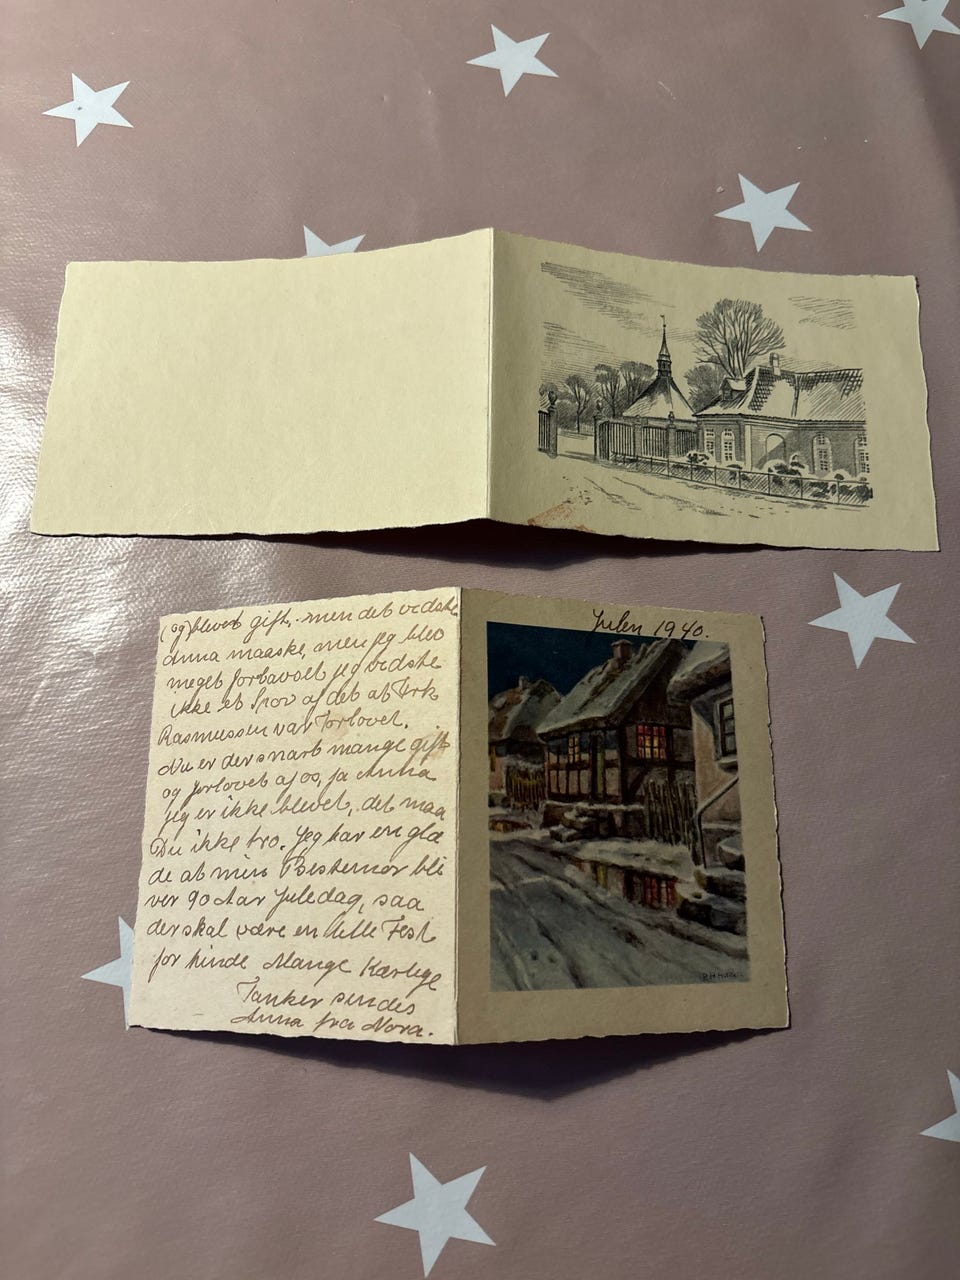 (og) blevet gift, men det vidste
Anna maaske, men jeg blev
meget forbavset jeg vidste
ikke et Spor af det at Frk
Rasmussen var Forlovet.
Nu er der snart mange gift
og forlovet af os, ja Anna
jeg er ikke blevet, det maa
Du ikke tro. Jeg har en glæ
de at min Bestemor bli
ver 90 Aar Juledag, saa
der skal være en lille Fest
for hinde Mange Kærlige
Tanker sendes
Anna fra Nora.
Julen 1940.